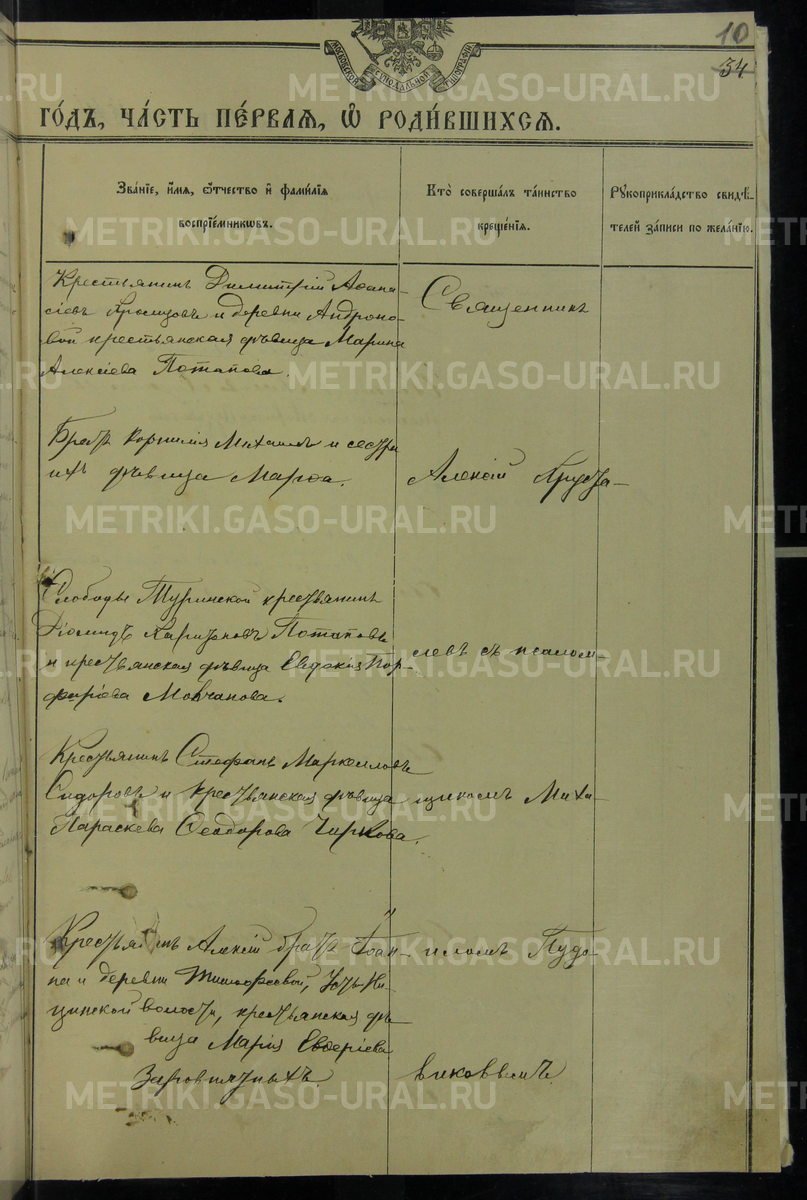 10
34
МОСКОВСКОЙ СѴНОДАЛЬНОЙ ТИПОГРАФІИ
ГО́ДЪ, ЧА́СТЬ ПЕ́РВАѦ, Ѡ҆ РОДИ́ВШИХСѦ.
Зва́нїе, и҆́мѧ, ѻ҆́тчество и҆ фами́лїѧ
воспрїе́мникѡвъ.
Кто̀ соверша́лъ та́инство
креще́нїѧ.
Рꙋкоприкла́дство свидѣ́-
телей за́писи по жела́нїю.
Крестьянинъ Димитрій Аѳана-
сіевъ и деревни Андроно-
вой крестьянская дѣвица Марина
Алексіева Потапова.
Священникъ
Братъ Корнилія Михаилъ и сестра
ихъ дѣвица Марѳа.
Алексій Хруста-
Слободы Туринской крестьянинъ
Потаповъ
и крестьянская дѣвица Евдокія Пор-
фиріева Молчанова.
левъ съ псалом-
Крестьянинъ Стефанъ Маркелловъ
Сидоровъ и крестьянская дѣвица
Параскева Ѳеодорова Чиркова.
щикомъ Миха-
Крестьянинъ Алексій братъ Іоан-
на и деревни Тимофеевой, Усть-Ни-
цинской волости, крестьянская дѣ-
вица Марія
иломъ Пудо-
виковымъ.
METRIKI.GASO-URAL.RU